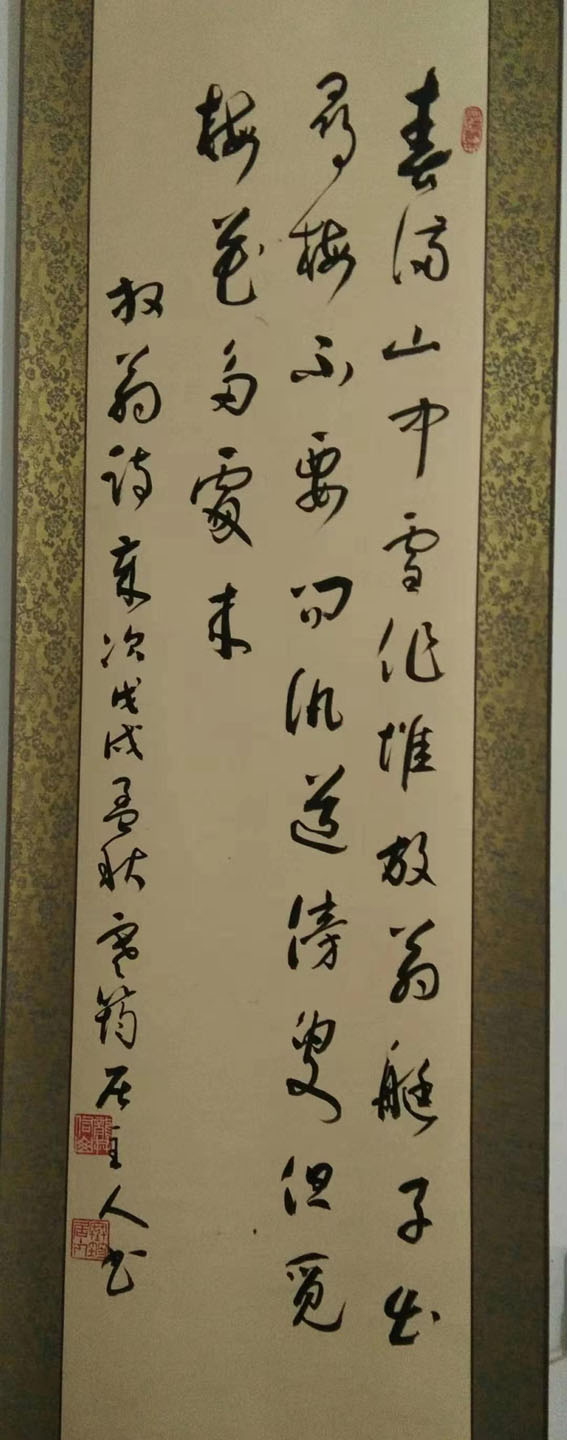 春满山中雪作堆放翁艇子出
尋梅不要问讯道傍叟但觅
梅花多處来
放翁诗歲次戊戌孟秋筠居主人书